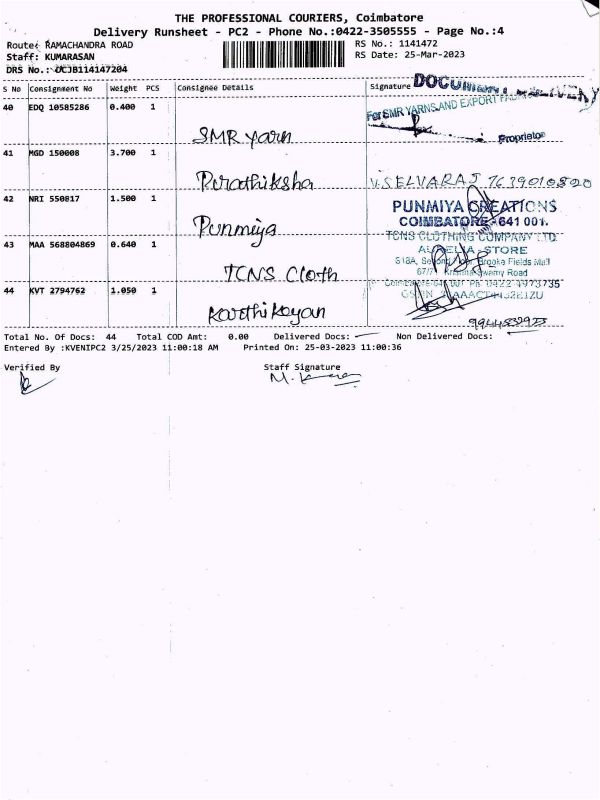 THE PROFESSIONAL COURIERS, Coimbatore
Delivery Runsheet - PC2 - Phone No.:0422-3505555 - Page No.:4
Route: RAMACHANDRA ROAD
RS No.: 1141472
Staff: KUMARASAN
RS Date: 25-Mar-2023
DRS No.: UCJB114147204
S No Consignment No Weight PCS Consignee Details Signature
40 EDQ 10585286 0.400 1 SMR Yarn
For SMR YARNS AND EXPORT
Proprietor
41 MGD 150008 3.700 1 V.SELVARAJ
42 NRI 550817 1.500 1 Punmiya
PUNMIYA CREATIONS
COIMBATORE - 641 001.
43 MAA 568804869 0.640 1 TCNS Cloth
TCNS CLOTHING COMPANY LTD
STORE
Brooke Fields Mall
67/7 Krishnaswamy Road
44 KVT 2794762 1.050 1 Karthikeyan
Total No. Of Docs: 44 Total COD Amt: 0.00 Delivered Docs: Non Delivered Docs:
Entered By :KVENIPC2 3/25/2023 11:00:18 AM Printed On: 25-03-2023 11:00:36
Verified By Staff Signature